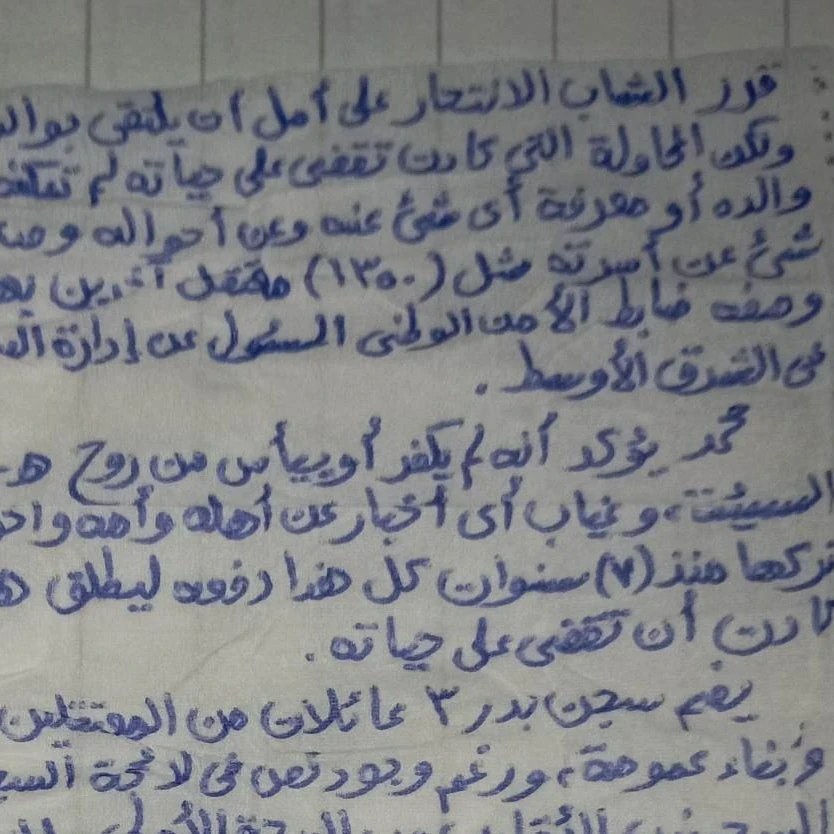 قرر الشاب الانتحار على أمل أن يلتقى بوالد
ولكن المحاولة التي كادت تقضى على حياته لم تكف
والده أو معرفة أى شئ عنه وعن أحواله
شئ عن أسرته مثل (١٣٥٠) معتقل آخرين
وصفه ضابط الأمن الوطنى المسئول عن إدارة
فى الشرق الأوسط .
محمد يؤكد أنه لم يكفر أو ييأس من روح
السيئة، وغياب أى أخبار عن أهله وأمه
تركها منذ (٧) سنوات كل هذا دفعه ليطلق
كادت أن تقضى على حياته .
يضم سجن بدر ٣ عائلات من المعتقلين
وأبناء عمومة، ورغم وجود نص فى لائحة